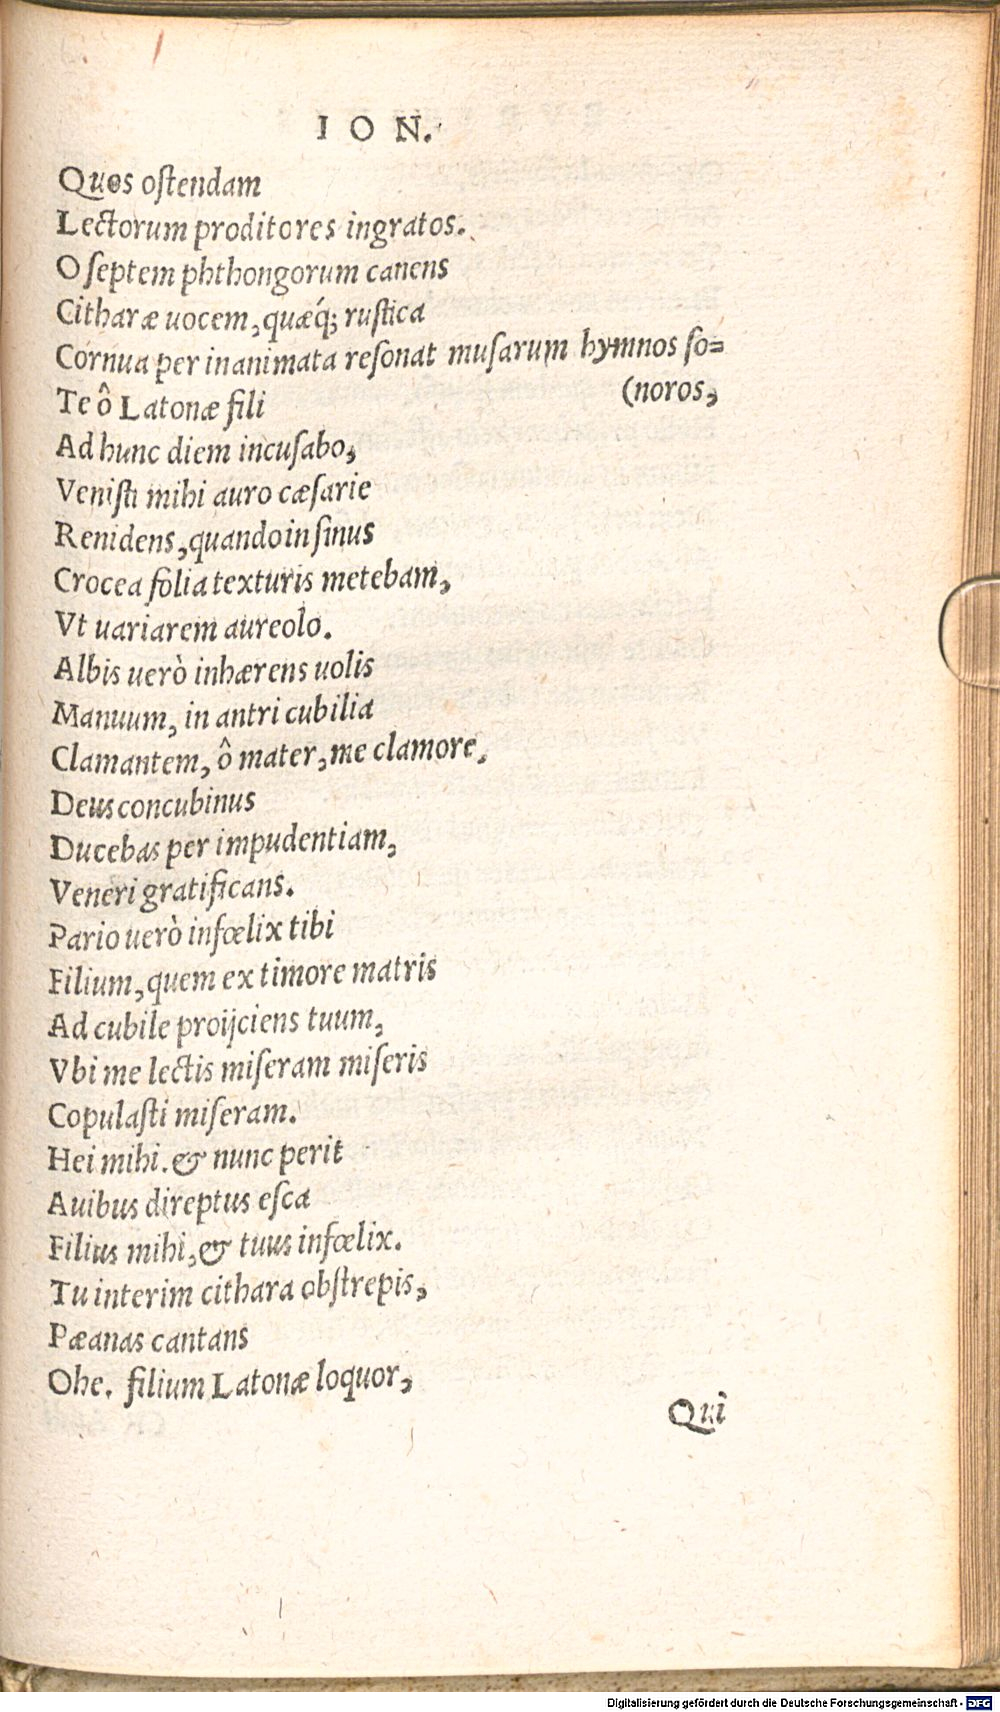 ION.
Quos ostendam
Lectorum proditores ingratos.
O septem phthongorum canens
Citharæ uocem, quæq́; rustica
Cornua per inanimata resonat musarum hymnos so=
(noros,
Te ô Latonæ fili
Ad hunc diem incusabo,
Venisti mihi auro cæsarie
Renidens, quando in sinus
Crocea folia texturis metebam,
Vt uariarem aureolo.
Albis uerò inhærens uolis
Manuum, in antri cubilia
Clamantem, ô mater, me clamore,
Deus concubinus
Ducebas per impudentiam,
Veneri gratificans.
Pario uerò infœlix tibi
Filium, quem ex timore matris
Ad cubile proijciens tuum,
Vbi me lectis miseram miseris
Copulasti miseram.
Hei mihi. & nunc perit
Auibus direptus esca
Filius mihi, & tuus infœlix.
Tu interim cithara obstrepis,
Pæanas cantans
Ohe. filium Latonæ loquor,
Qui
Digitalisierung gefördert durch die Deutsche Forschungsgemeinschaft - DFG